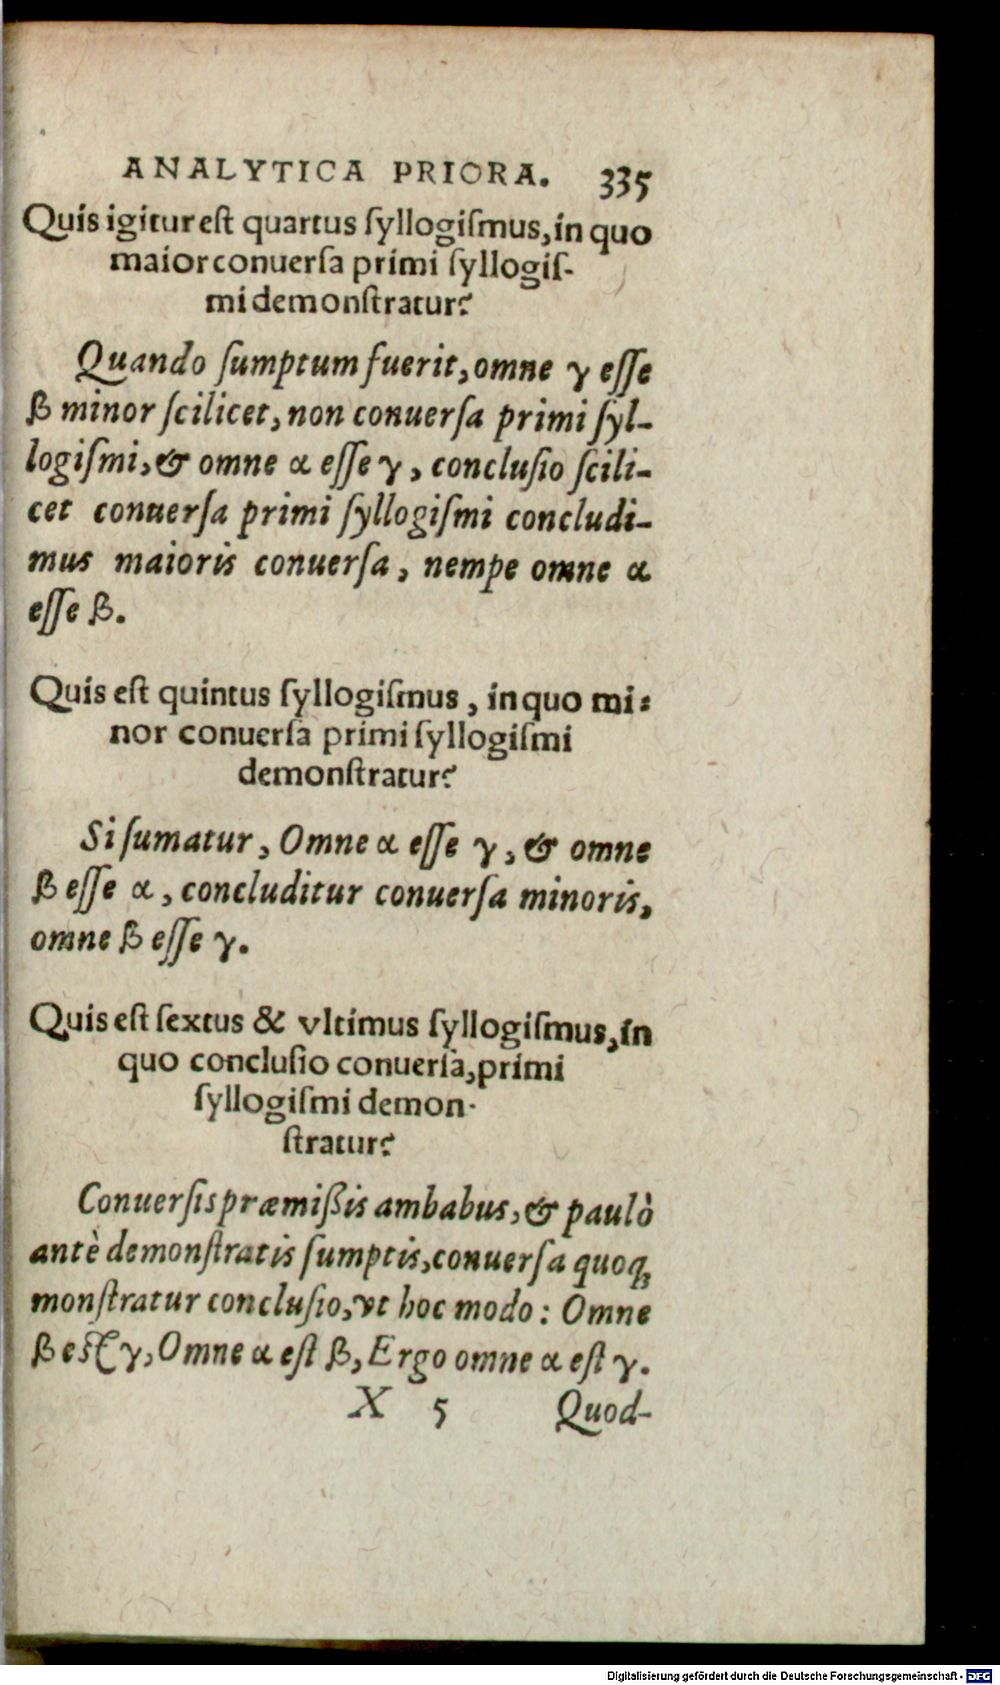 ANALYTICA PRIORA. 335
Quis igitur eſt quartus ſyllogiſmus, in quo
maior conuerſa primi ſyllogiſ-
mi demonſtratur?
Quando ſumptum fuerit, omne γ eſſe
β minor ſcilicet, non conuerſa primi ſyl-
logiſmi, & omne α eſſe γ, concluſio ſcili-
cet conuerſa primi ſyllogiſmi concludi-
mus maioris conuerſa, nempe omne α
eſſe β.
Quis eſt quintus ſyllogiſmus, in quo mi-
nor conuerſa primi ſyllogiſmi
demonſtratur?
Si ſumatur, Omne α eſſe γ, & omne
β eſſe α, concluditur conuerſa minoris,
omne β eſſe γ.
Quis eſt ſextus & vltimus ſyllogiſmus, in
quo concluſio conuerſa, primi
ſyllogiſmi demon-
ſtratur?
Conuerſis præmißis ambabus, & paulò
antè demonſtratis ſumptis, conuerſa quoq;
monſtratur concluſio, vt hoc modo: Omne
β eſt γ, Omne α eſt β, Ergo omne α eſt γ.
X 5 Quod-
Digitalisierung gefördert durch die Deutsche Forschungsgemeinschaft - DFG